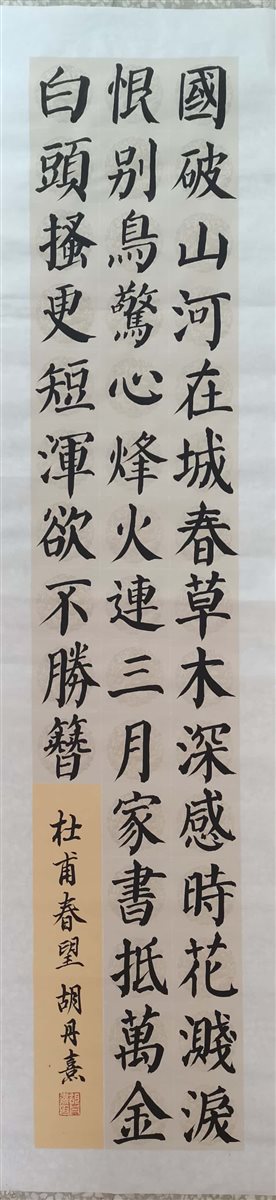 國破山河在城春草木深感時花濺淚
恨别鳥驚心烽火連三月家書抵萬金
白頭搔更短渾欲不勝簪
杜甫春望 胡丹熹